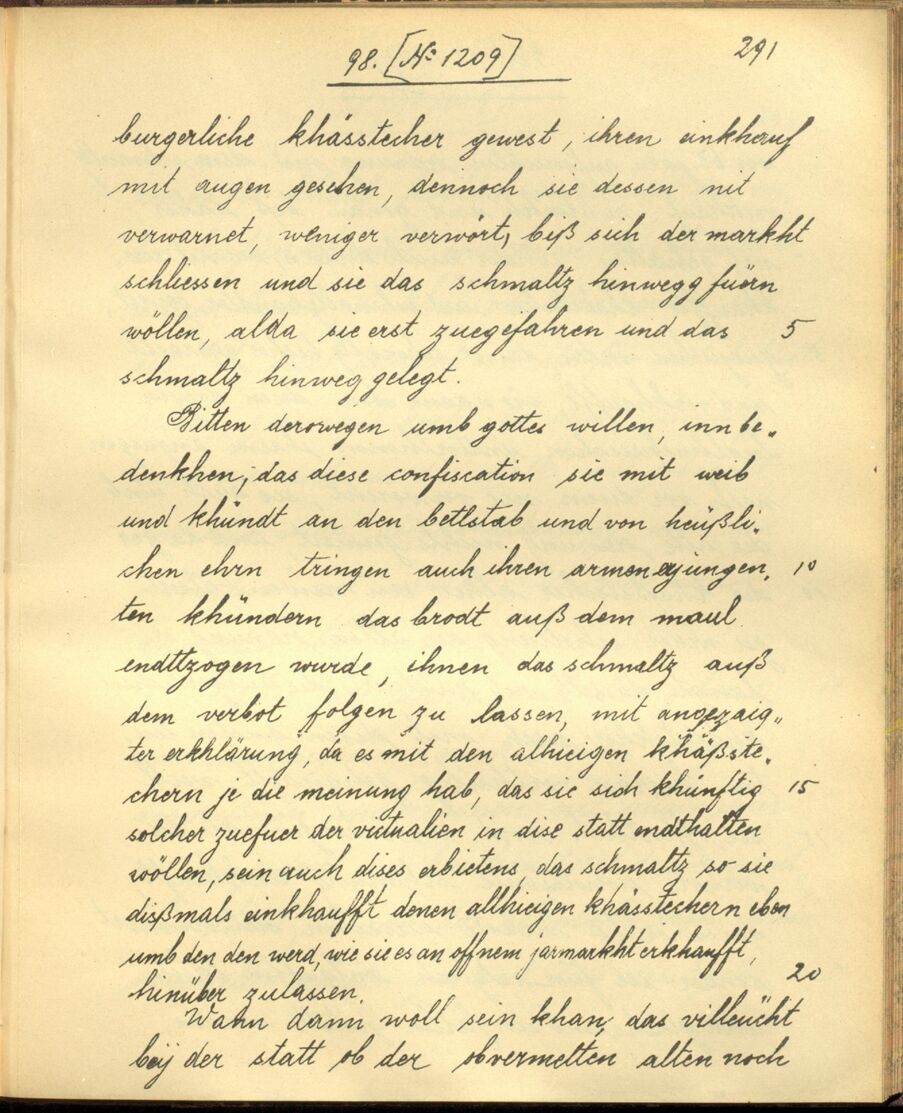 98. [No 1209]
291
burgerliche khässtecher gewest, ihren einkhauf
mit augen gesehen, dennoch sie dessen nit
verwarnet, weniger verwört, biß sich der markht
schliessen und sie das schmaltz hinwegg füörn
wöllen, alda sie erst zuegefahren und das 5
schmaltz hinweg gelegt.
Bitten derowegen umb gottes willen, inn be„
denkhen, das diese confiscation sie mit weib
und khündt an den bettlstab und von heüßli„
chen ehrn tringen auch ihren armen erjungen„ 10
ten khündern das brodt auß dem maul
endttzogen wurde, ihnen das schmaltz auß
dem verbot folgen zu lassen, mit angezaig„
ter erkhlärung, da es mit den alhieigen khäßste„
chern je die meinung hab, das sie sich khünftig 15
solcher zuefuer der victualien in dise statt endthalten
wöllen, sein auch dises erbietens, das schmaltz so sie
dißmals einkhaufft denen allhieigen khässtechern eben
umb den den werd, wie sie es an offnem jarmarkht erkhaufft,
hinüber zulassen. 20
Wann dann woll sein khan, das villeücht
beij der statt ob der obvermelten alten noch